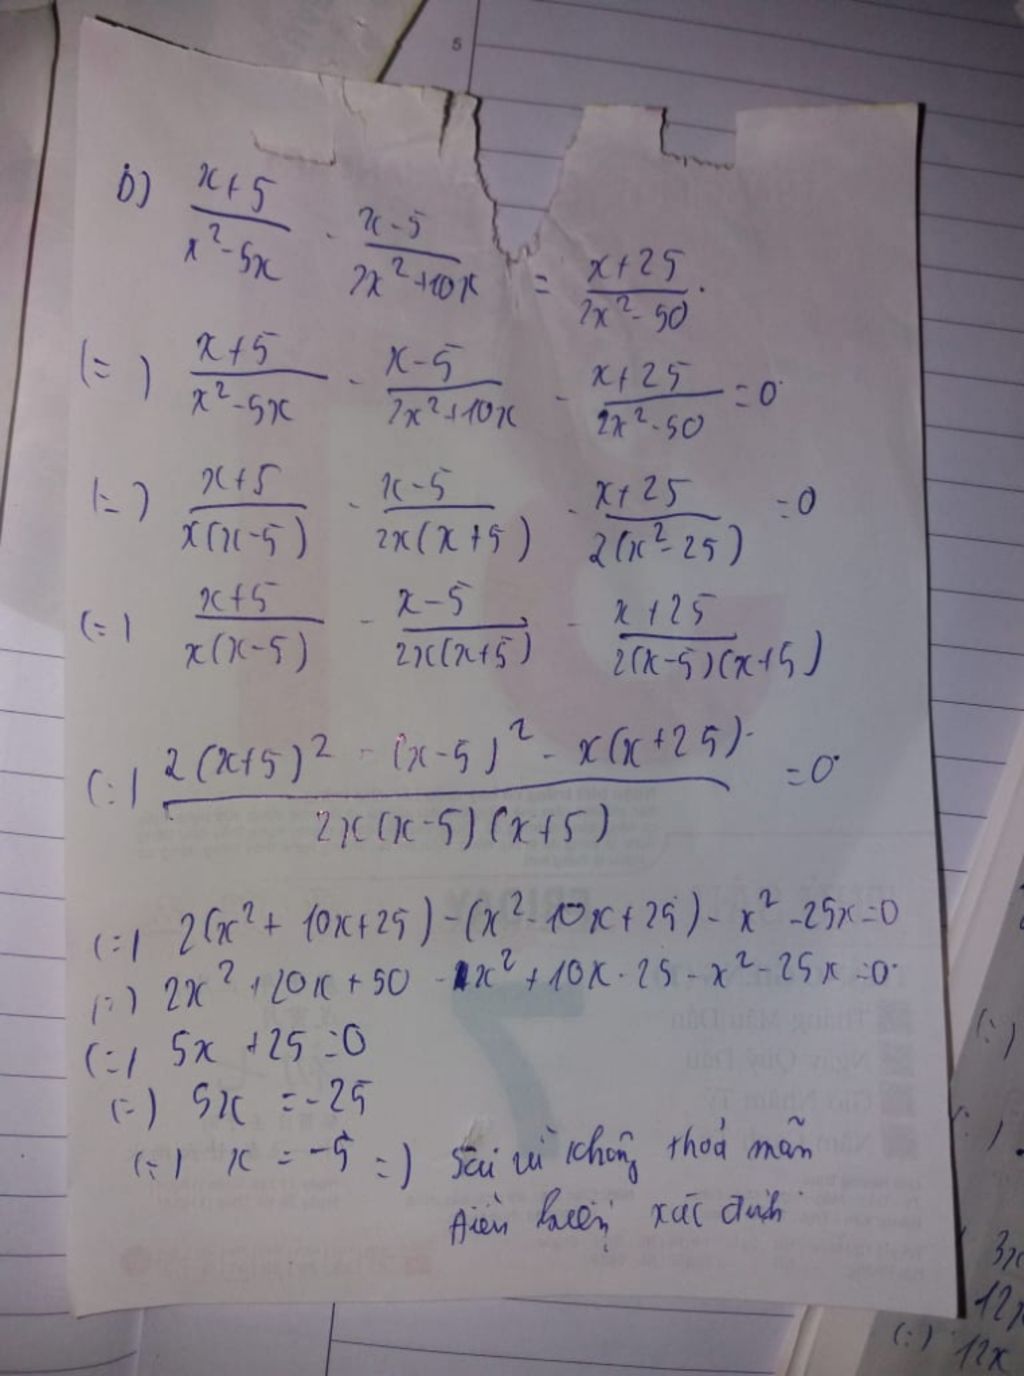 5
b) \frac{x+5}{x^2-5x} - \frac{x-5}{2x^2+10x} = \frac{x+25}{2x^2-50}.
(=) \frac{x+5}{x^2-5x} - \frac{x-5}{2x^2+10x} - \frac{x+25}{2x^2-50} = 0
(=) \frac{x+5}{x(x-5)} - \frac{x-5}{2x(x+5)} - \frac{x+25}{2(x^2-25)} = 0
(=) \frac{x+5}{x(x-5)} - \frac{x-5}{2x(x+5)} - \frac{x+25}{2(x-5)(x+5)}
(=) \frac{2(x+5)^2 - (x-5)^2 - x(x+25)}{2x(x-5)(x+5)} = 0
(=) 2(x^2+10x+25) - (x^2-10x+25) - x^2 - 25x = 0
(=) 2x^2 + 20x + 50 - x^2 + 10x - 25 - x^2 - 25x = 0
(=) 5x + 25 = 0
(=) 5x = -25
(=) x = -5 =) Sai vì không thoả mãn
điều kiện xác định
3x
12x
(=) 12x